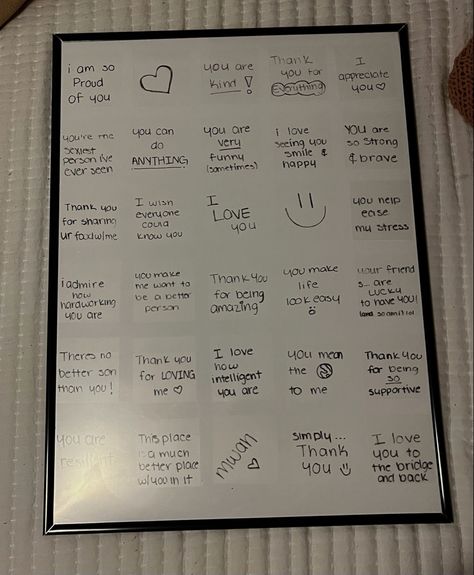 i am so
Proud
of you
you are
kind!
Thank
you for
everything
I
appreciate
you
you're the
sexiest
person i've
ever seen
you can
do
ANYTHING
you are
very
funny
(sometimes)
i love
seeing you
smile &
happy
you are
so strong
& brave
Thank you
for sharing
ur food w/me
I wish
everyone
could
know you
I
LOVE
you
you help
ease
my stress
i admire
how
hardworking
you are
you make
me want to
be a better
person
Thank you
for being
amazing
you make
life
look easy
your friend
s... are
LUCKY
to have YOU!
(and so am i) lol
Theres no
better son
than you!
Thank you
for LOVING
me
I love
how
intelligent
you are
you mean
the
to me
Thank you
for being
so
supportive
you are
resilient
This place
is a much
better place
w/you in it
mwah
simply...
Thank
you
I love
you to
the bridge
and back